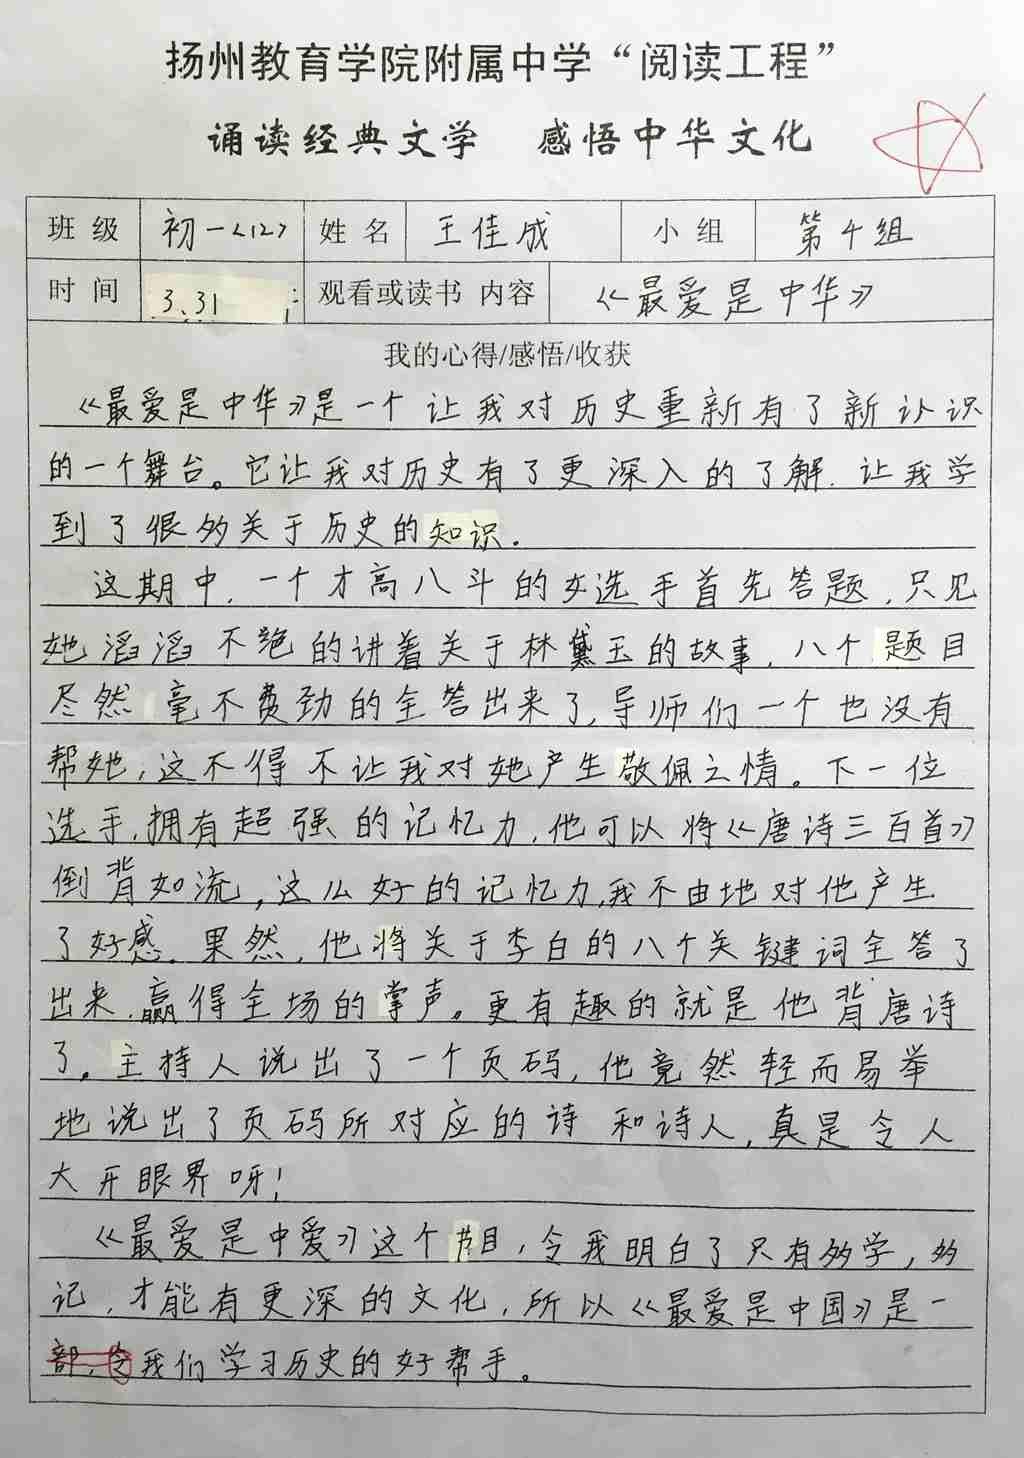 扬州教育学院附属中学“阅读工程”
诵读经典文学 感悟中华文化
班级 初一<12> 姓名 王佳成 小组 第4组
时间 3.31 观看或读书 内容 《最爱是中华》
我的心得/感悟/收获
《最爱是中华》是一个让我对历史重新有了新认识
的一个舞台。它让我对历史有了更深入的了解.让我学
到了很多关于历史的知识.
这期中,一个才高八斗的女选手首先答题,只见
她滔滔不绝的讲着关于林黛玉的故事,八个题目
尽然毫不费劲的全答出来了,导师们一个也没有
帮她,这不得不让我对她产生敬佩之情。下一位
选手,拥有超强的记忆力,他可以将《唐诗三百首》
倒背如流,这么好的记忆力,我不由地对他产生
了好感.果然,他将关于李白的八个关键词全答了
出来,赢得全场的掌声。更有趣的就是他背唐诗
了。主持人说出了一个页码,他竟然轻而易举
地说出了页码所对应的诗和诗人,真是令人
大开眼界呀!
《最爱是中爱》这个节目,令我明白了只有多学,多
记,才能有更深的文化,所以《最爱是中国》是一
部,令我们学习历史的好帮手。